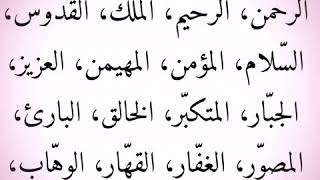 الرحمن، الرحيم، الملك، القدوس،
السّلام، المؤمن، المهيمن، العزيز،
الجبّار، المتكبّر، الخالق، البارئ،
المصوّر، الغفّار، القهّار، الوهّاب،